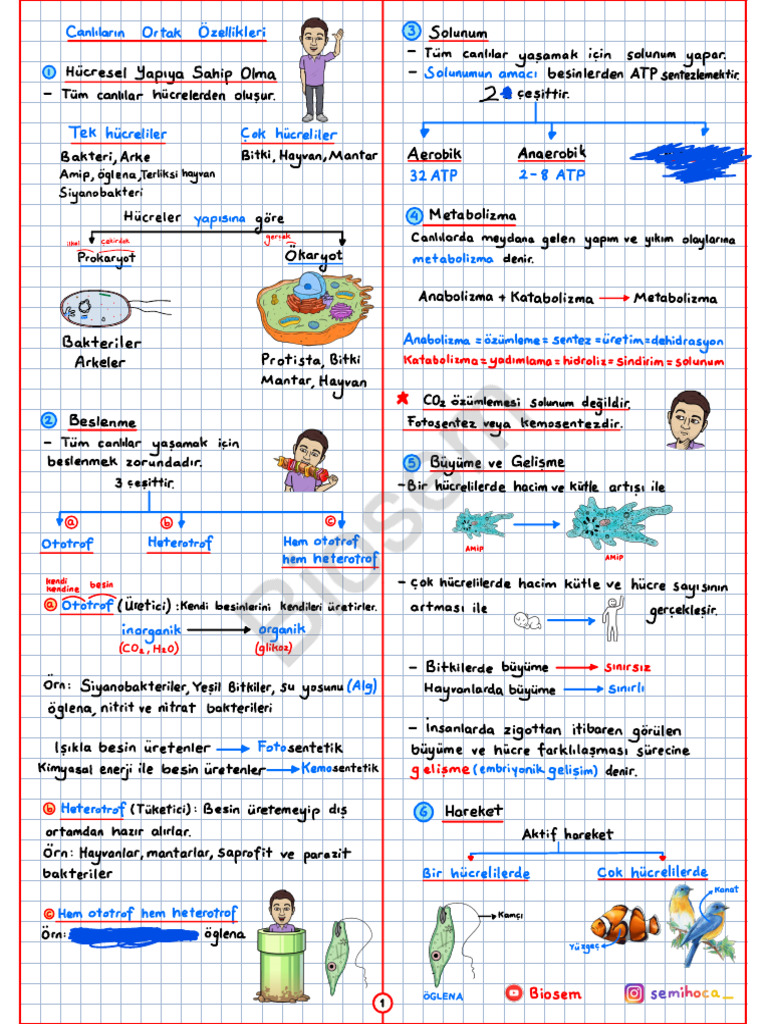 Canlıların Ortak Özellikleri
1 Hücresel Yapıya Sahip Olma
- Tüm canlılar hücrelerden oluşur.
Tek hücreliler
Bakteri, Arke
Amip, öglena, Terliksi hayvan
Siyanobakteri
Çok hücreliler
Bitki, Hayvan, Mantar
Hücreler yapısına göre
ilkel çekirdek
Prokaryot
gerçek
Ökaryot
Bakteriler
Arkeler
Protista, Bitki
Mantar, Hayvan
2 Beslenme
- Tüm canlılar yaşamak için
beslenmek zorundadır.
3 çeşittir.
a
Ototrof
b
Heterotrof
c
Hem ototrof
hem heterotrof
kendi
kendine
besin
a Ototrof (Üretici) : Kendi besinlerini kendileri üretirler.
inorganik → organik
(CO₂, H₂O) (glikoz)
Örn: Siyanobakteriler, Yeşil Bitkiler, su yosunu (Alg)
öglena, nitrit ve nitrat bakterileri
Işıkla besin üretenler → Fotosentetik
Kimyasal enerji ile besin üretenler → Kemosentetik
b Heterotrof (Tüketici) : Besin üretemeyip dış
ortamdan hazır alırlar.
Örn: Hayvanlar, mantarlar, saprofit ve parazit
bakteriler
c Hem ototrof hem heterotrof
Örn: öglena
3 Solunum
- Tüm canlılar yaşamak için solunum yapar.
- Solunumun amacı besinlerden ATP sentezlemektir.
2 çeşittir.
Aerobik
32 ATP
Anaerobik
2-8 ATP
4 Metabolizma
Canlılarda meydana gelen yapım ve yıkım olaylarına
metabolizma denir.
Anabolizma + Katabolizma → Metabolizma
Anabolizma = özümleme = sentez = üretim = dehidrasyon
Katabolizma = yadımlama = hidroliz = sindirim = solunum
* CO₂ özümlemesi solunum değildir.
Fotosentez veya kemosentezdir.
5 Büyüme ve Gelişme
- Bir hücrelilerde hacim ve kütle artışı ile
AMİP
AMİP
- Çok hücrelilerde hacim kütle ve hücre sayısının
artması ile gerçekleşir.
- Bitkilerde büyüme → sınırsız
Hayvanlarda büyüme → sınırlı
- İnsanlarda zigottan itibaren görülen
büyüme ve hücre farklılaşması sürecine
gelişme (embriyonik gelişim) denir.
6 Hareket
Aktif hareket
Bir hücrelilerde
Kamçı
ÖGLENA
Çok hücrelilerde
Yüzgeç
Kanat
Biosem
semihoca_
1
Biosem